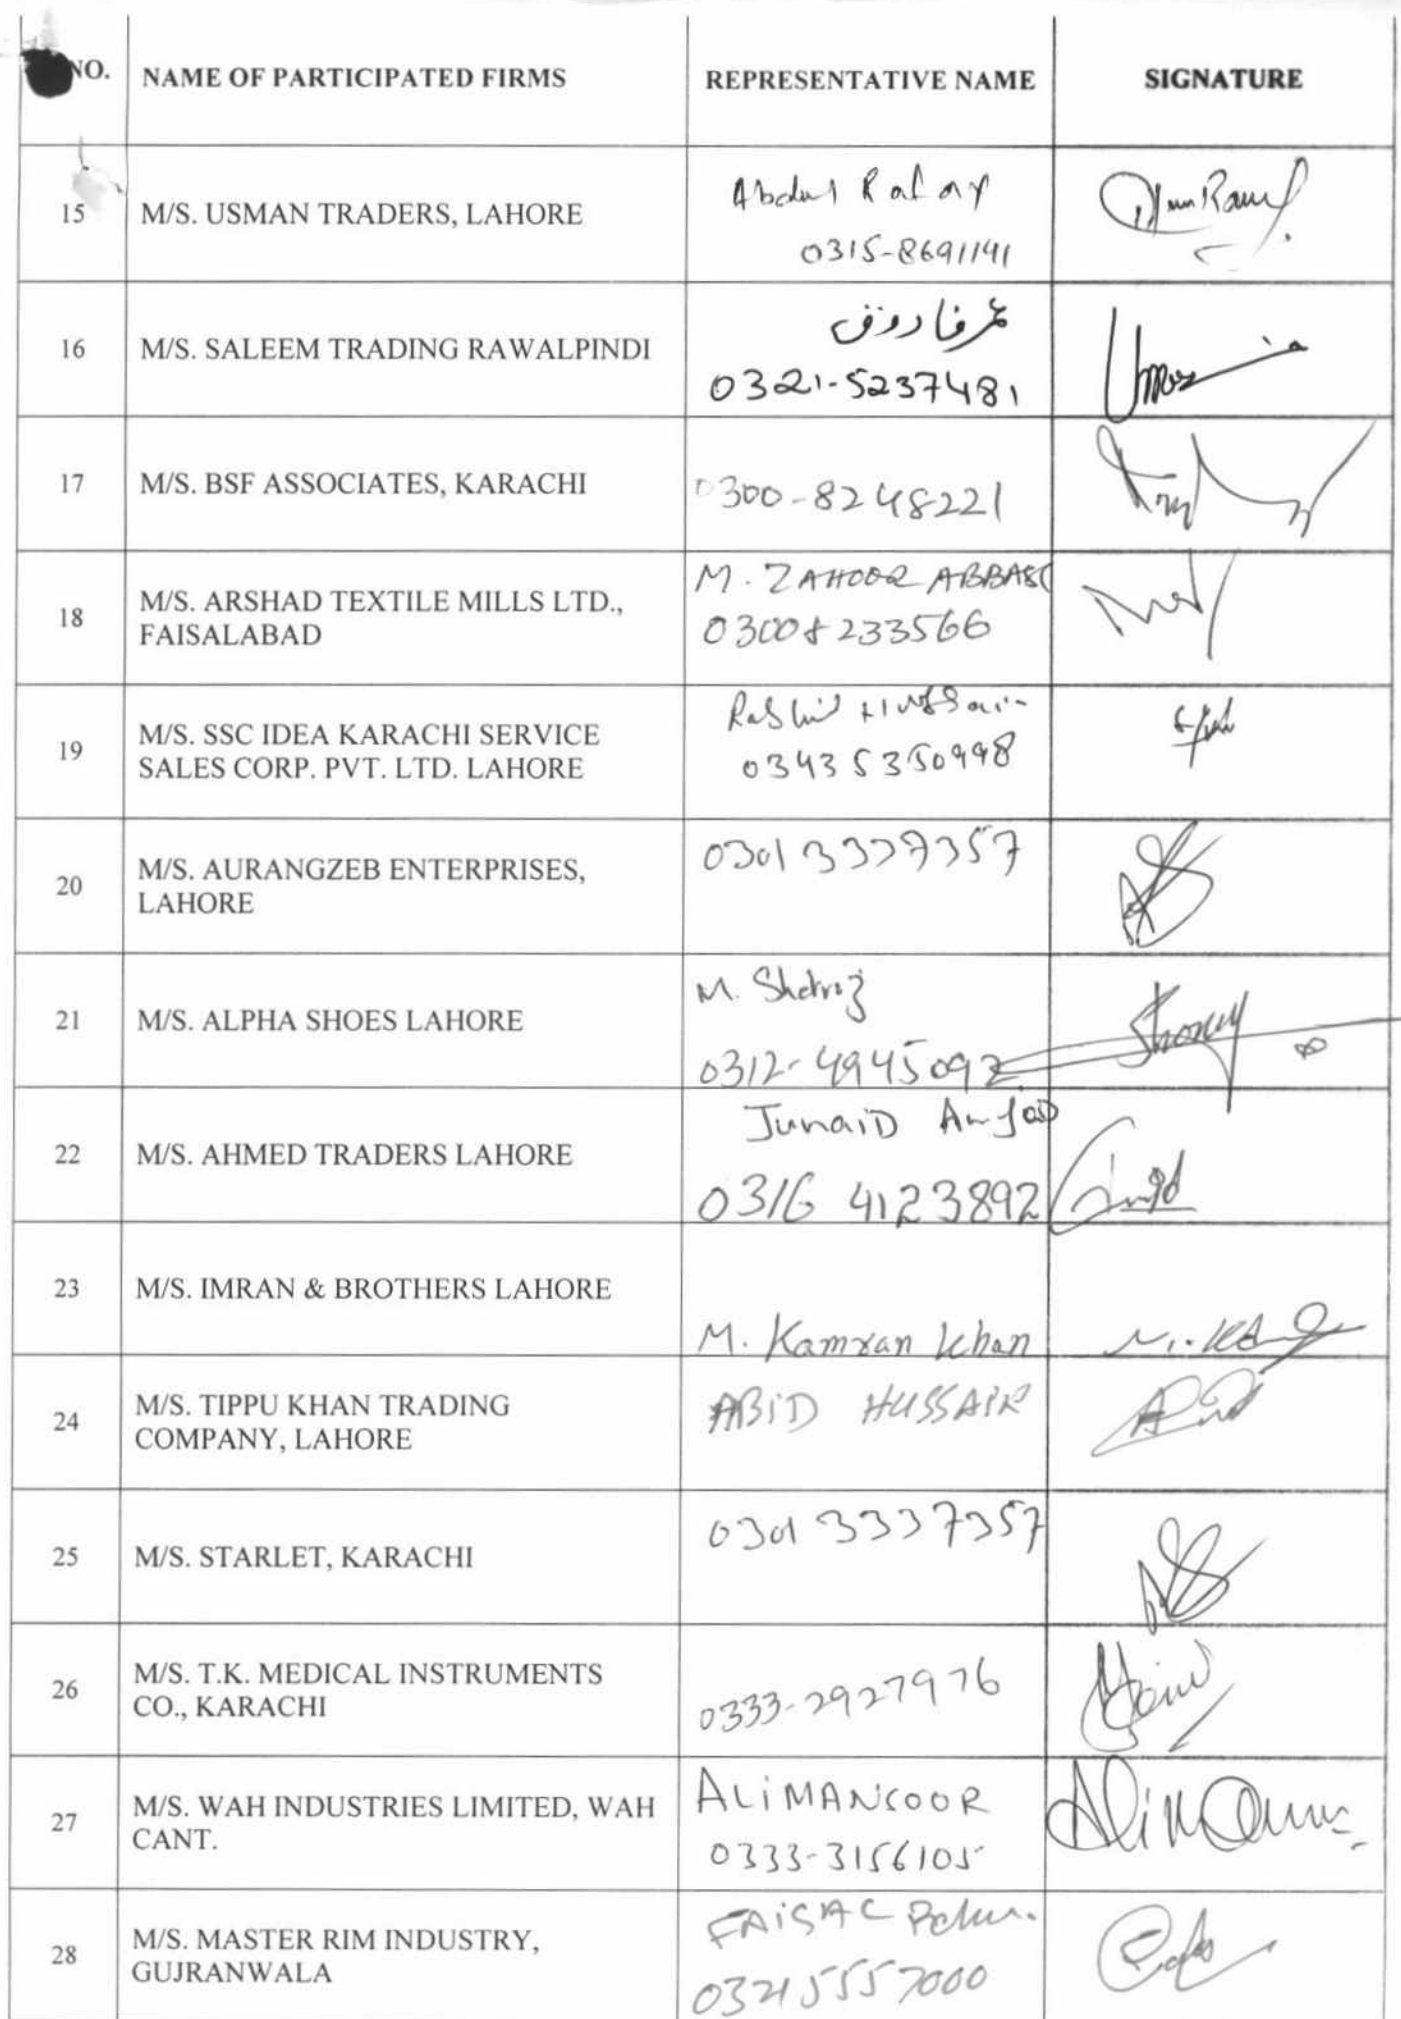 NO.
NAME OF PARTICIPATED FIRMS
REPRESENTATIVE NAME
SIGNATURE
15
M/S. USMAN TRADERS, LAHORE
Abdul
0315-8691141
16
M/S. SALEEM TRADING RAWALPINDI
عمر فاروق
0321-5237481
17
M/S. BSF ASSOCIATES, KARACHI
0300-8248221
18
M/S. ARSHAD TEXTILE MILLS LTD.,
FAISALABAD
M. ZAHOOR ABBASI
03008233566
19
M/S. SSC IDEA KARACHI SERVICE
SALES CORP. PVT. LTD. LAHORE
Rashid Hussain
03435350998
20
M/S. AURANGZEB ENTERPRISES,
LAHORE
0301 3337357
21
M/S. ALPHA SHOES LAHORE
M.
0312-4945092
22
M/S. AHMED TRADERS LAHORE
JunaiD Amjad
0316 4123892
23
M/S. IMRAN & BROTHERS LAHORE
M. Kamran Khan
24
M/S. TIPPU KHAN TRADING
COMPANY, LAHORE
ABiD HUSSAIN
25
M/S. STARLET, KARACHI
0301 3337357
26
M/S. T.K. MEDICAL INSTRUMENTS
CO., KARACHI
0333-2927976
27
M/S. WAH INDUSTRIES LIMITED, WAH
CANT.
ALi MANSOOR
0333-3156105
28
M/S. MASTER RIM INDUSTRY,
GUJRANWALA
FAISAL
03215557000